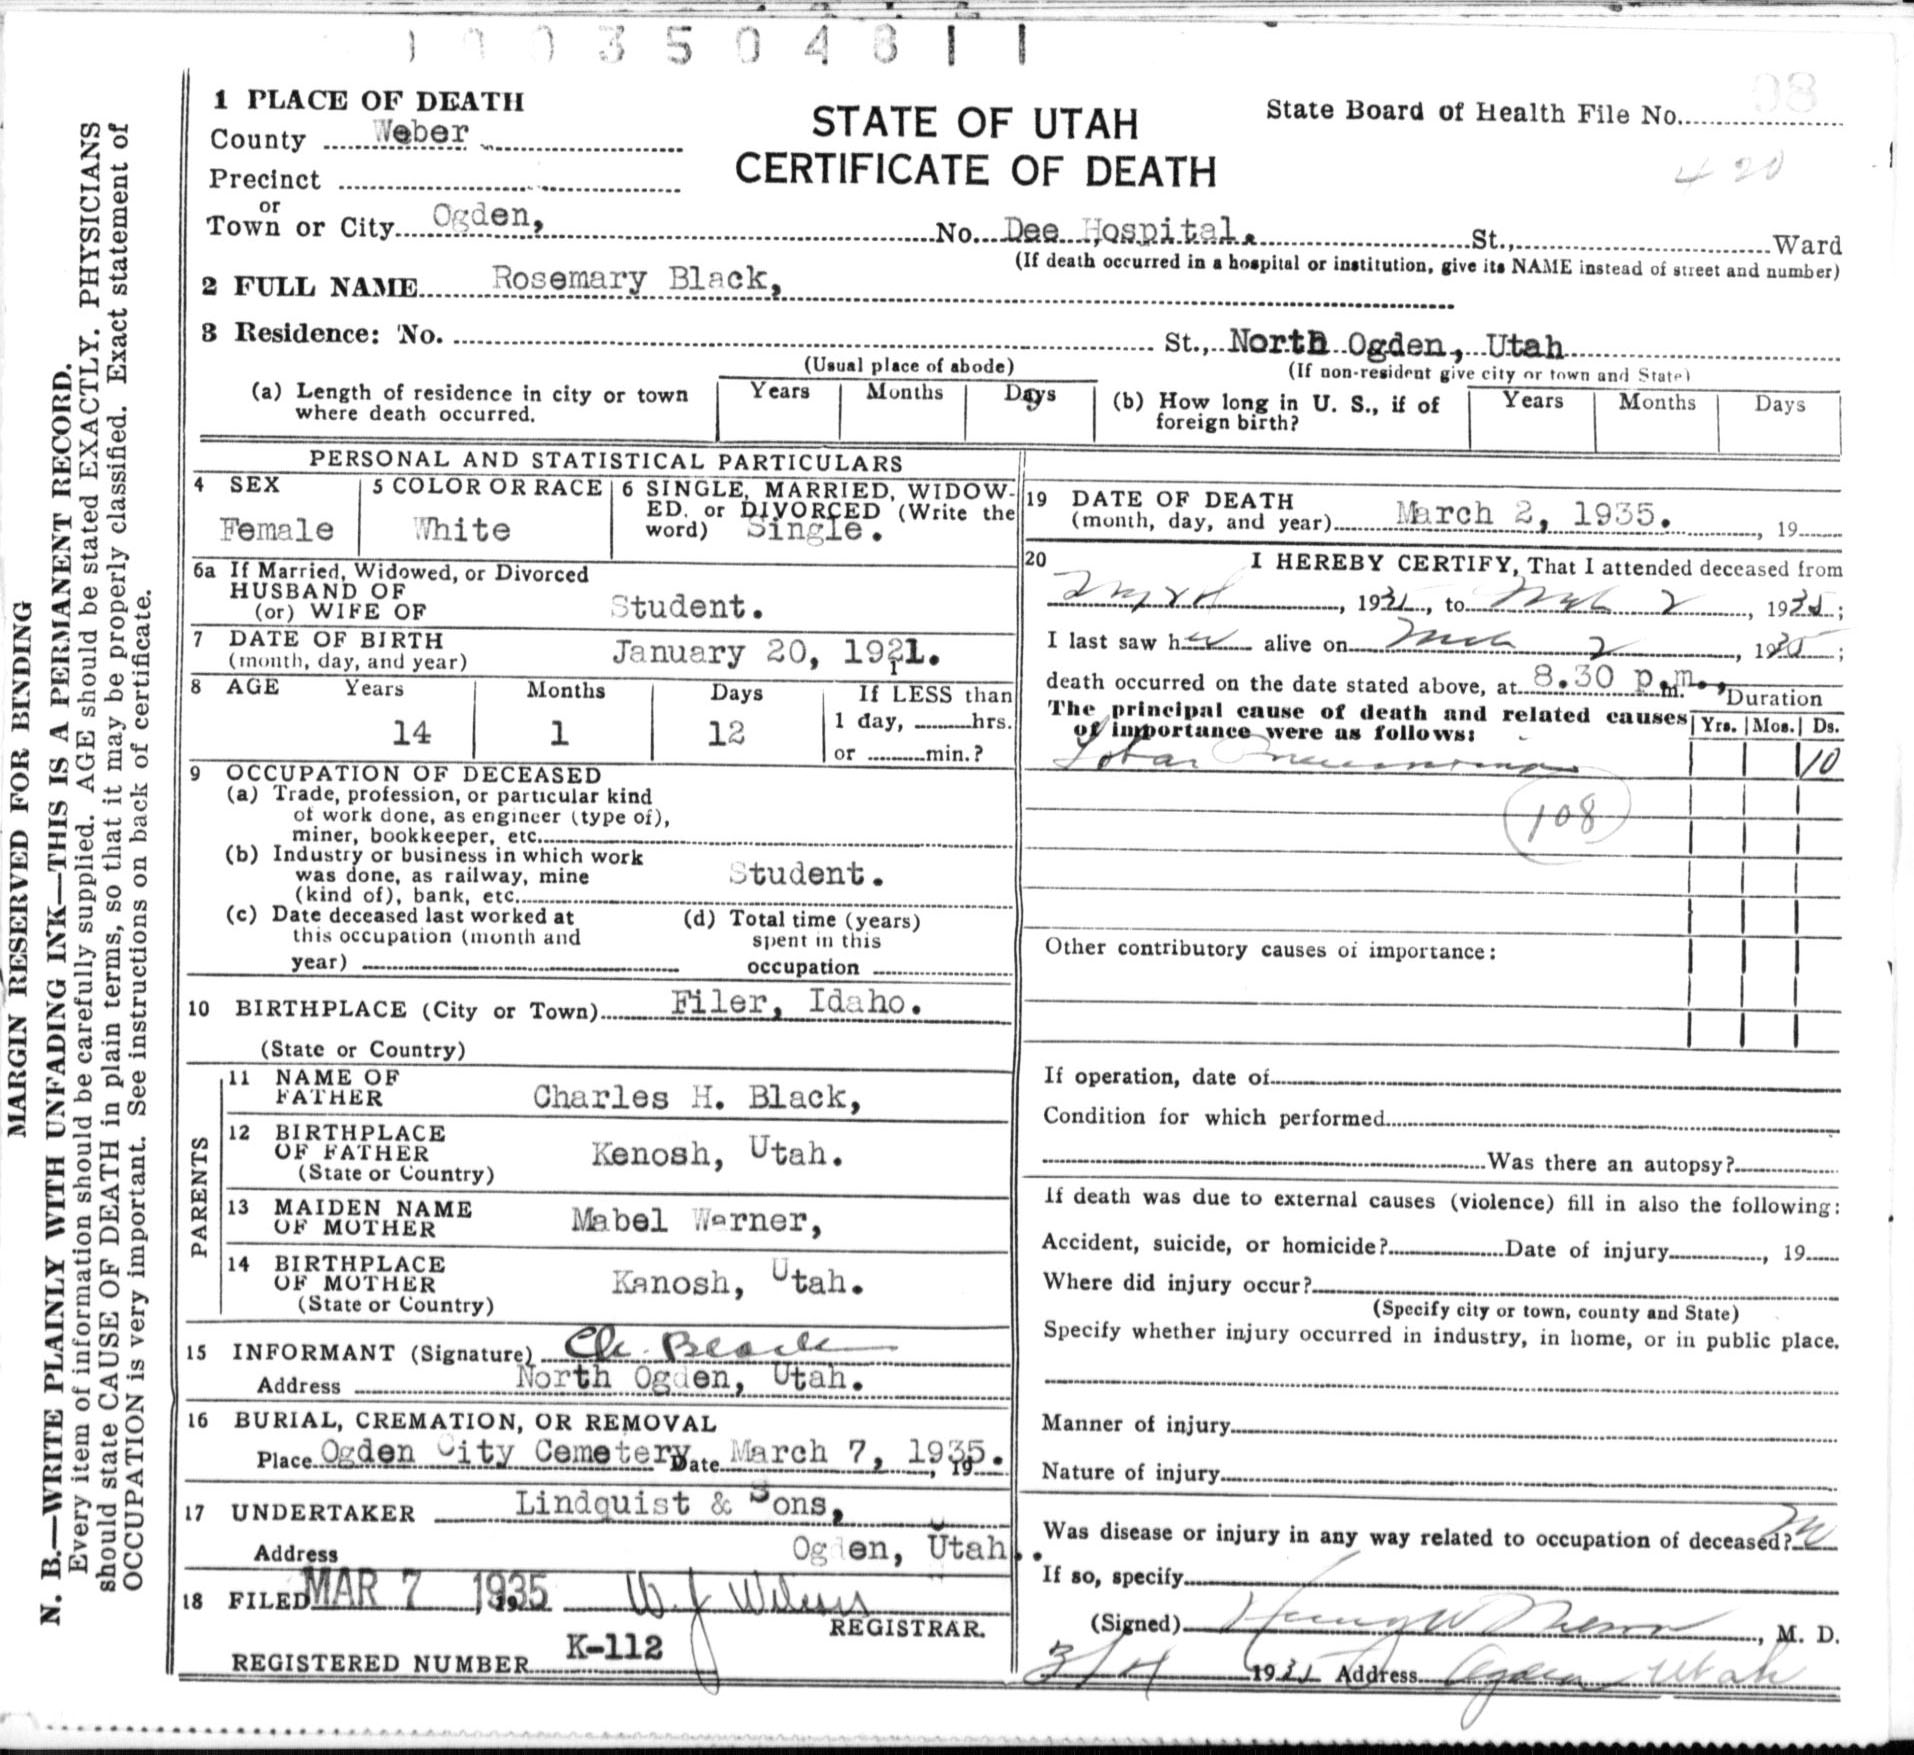 1003504811
1 PLACE OF DEATH
County Weber
Precinct
or
Town or City Ogden, No. Dee Hospital. St., Ward
(If death occurred in a hospital or institution, give its NAME instead of street and number)
STATE OF UTAH
CERTIFICATE OF DEATH
State Board of Health File No. 98
420
2 FULL NAME Rosemary Black,
3 Residence: No. St., North Ogden, Utah
(Usual place of abode)
(If non-resident give city or town and State)
(a) Length of residence in city or town where death occurred. Years Months Days
(b) How long in U. S., if of foreign birth? Years Months Days
PERSONAL AND STATISTICAL PARTICULARS
4 SEX
Female
5 COLOR OR RACE
White
6 SINGLE, MARRIED, WIDOW-
ED, or DIVORCED (Write the
word) Single.
6a If Married, Widowed, or Divorced
HUSBAND OF
(or) WIFE OF Student.
7 DATE OF BIRTH
(month, day, and year) January 20, 1921.
8 AGE Years Months Days If LESS than
14 1 12 1 day, hrs.
or min.?
9 OCCUPATION OF DECEASED
(a) Trade, profession, or particular kind
of work done, as engineer (type of),
miner, bookkeeper, etc.
(b) Industry or business in which work
was done, as railway, mine
(kind of), bank, etc. Student.
(c) Date deceased last worked at
this occupation (month and
year)
(d) Total time (years)
spent in this
occupation
10 BIRTHPLACE (City or Town) Filer, Idaho.
(State or Country)
PARENTS
11 NAME OF
FATHER Charles H. Black,
12 BIRTHPLACE
OF FATHER Kenosh, Utah.
(State or Country)
13 MAIDEN NAME
OF MOTHER Mabel Warner,
14 BIRTHPLACE
OF MOTHER Kanosh, Utah.
(State or Country)
15 INFORMANT (Signature) Ch. Black
Address North Ogden, Utah.
16 BURIAL, CREMATION, OR REMOVAL
Place Ogden City Cemetery Date March 7, 1935. , 19
17 UNDERTAKER Lindquist & Sons,
Address Ogden, Utah..
18 FILED MAR 7 1935 W J
REGISTRAR.
REGISTERED NUMBER K-112
19 DATE OF DEATH
(month, day, and year) March 2, 1935. , 19
20 I HEREBY CERTIFY, That I attended deceased from
, 1935, to Mch 2, 1935;
I last saw her alive on Mch 2, 1935;
death occurred on the date stated above, at 8.30 p.m.,
Duration
The principal cause of death and related causes
of importance were as follows: Yrs. Mos. Ds.
Lobar Pneumonia 10
108
Other contributory causes of importance:
If operation, date of
Condition for which performed
Was there an autopsy?
If death was due to external causes (violence) fill in also the following:
Accident, suicide, or homicide? Date of injury , 19
Where did injury occur?
(Specify city or town, county and State)
Specify whether injury occurred in industry, in home, or in public place.
Manner of injury
Nature of injury
Was disease or injury in any way related to occupation of deceased? No
If so, specify
(Signed) , M. D.
3/4 1935 Address Ogden Utah
MARGIN RESERVED FOR BINDING
N. B.—WRITE PLAINLY WITH UNFADING INK—THIS IS A PERMANENT RECORD.
Every item of information should be carefully supplied. AGE should be stated EXACTLY. PHYSICIANS
should state CAUSE OF DEATH in plain terms, so that it may be properly classified. Exact statement of
OCCUPATION is very important. See instructions on back of certificate.